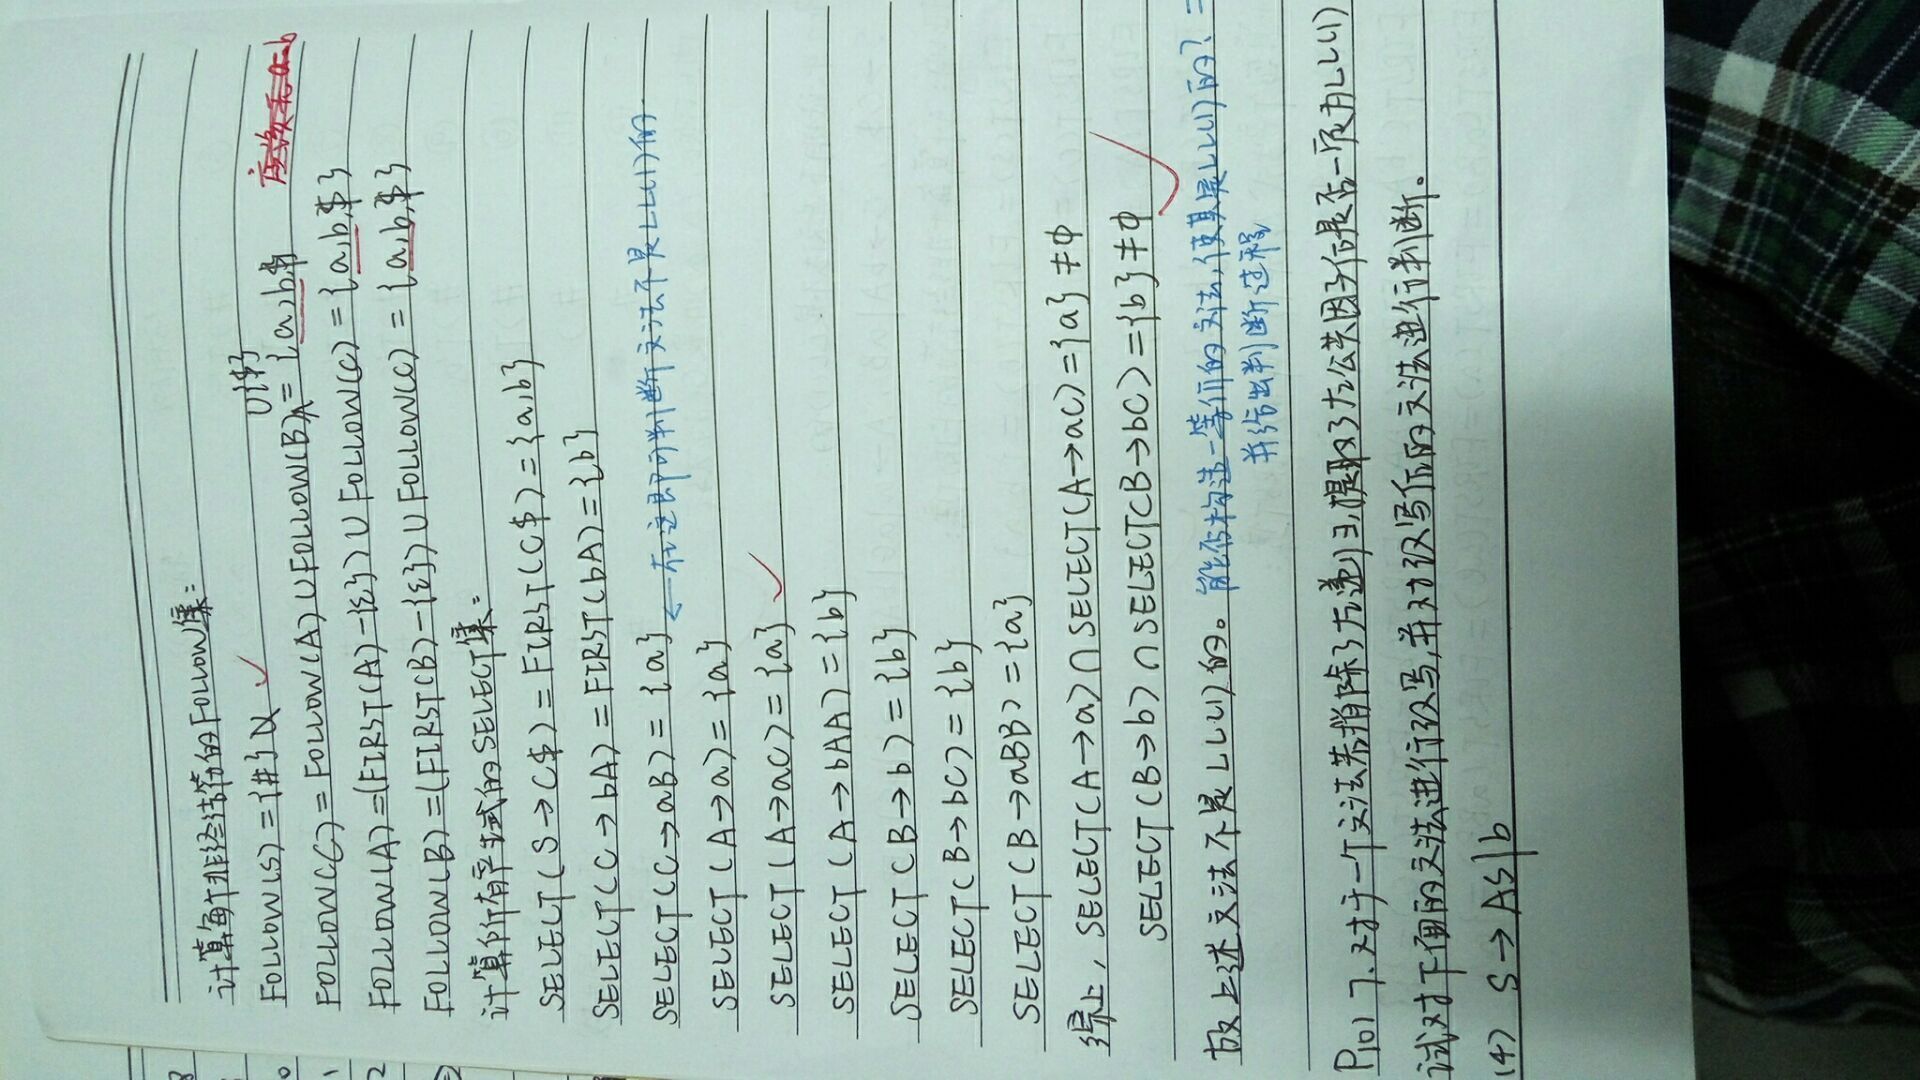 计算每个非终结符的FOLLOW集:
FOLLOW(S) = {#}
FOLLOW(C) = FOLLOW(A) ∪ FOLLOW(B) ∪{$} = {a,b,$ 应该无a-b
FOLLOW(A) =(FIRST(A)-{ε}) ∪ FOLLOW(C) = {a,b,$}
FOLLOW(B) =(FIRST(B)-{ε}) ∪ FOLLOW(C) = {a,b,$}
计算所有产生式的SELECT集:
SELECT(S→C$) = FIRST(C$) = {a,b}
SELECT(C→bA) = FIRST(bA) = {b}
SELECT(C→aB) = {a} ← 在这即可判断文法不是LL(1)的
SELECT(A→a) = {a}
SELECT(A→aC) = {a}
SELECT(A→bAA) = {b}
SELECT(B→b) = {b}
SELECT(B→bC) = {b}
SELECT(B→aBB) = {a}
综上, SELECT(A→a)∩SELECT(A→aC)={a}≠φ
SELECT(B→b)∩SELECT(B→bC)={b}≠φ
故上述文法不是LL(1)的。能否构造一等价的文法,使其是LL(1)的? =
并给出判断过程
P101 7. 对于一个文法若消除了左递归,提取了左公共因子后是否一定为LL(1)
试对下面的文法进行改写,并对改写后的文法进行判断。
(4) S→AS|b